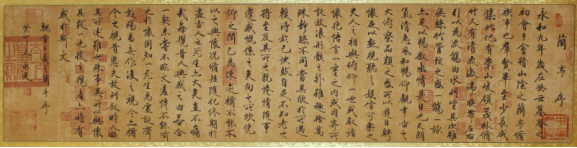 蘭亭序
永和九年歲在癸丑暮春之
初會于會稽山陰之蘭亭脩
禊事也羣賢畢至少長咸
集此地有崇山峻領茂林脩
竹又有清流激湍暎帶左右
引以為流觴曲水列坐其次雖
無絲竹管弦之盛一觴一詠
亦足以暢敘幽情是日也天朗
氣清惠風和暢仰觀宇宙之
大俯察品類之盛所以遊目騁
懷足以極視聽之娛信可樂也
夫人之相與俯仰一世或取諸
懷抱悟言一室之內或因寄所
託放浪形骸之外雖趣舍萬
殊靜躁不同當其欣於所遇
暫得於己快然自足不知老之
將至及其所之既倦情隨事
遷感慨係之矣向之所欣俛
仰之間已為陳迹猶不能不
以之興懷況脩短隨化終期於
盡古人云死生亦大矣豈不痛
哉每攬昔人興感之由若合
一契未嘗不臨文嗟悼不能喻
之於懷固知一死生為虛誕齊
彭殤為妄作後之視今亦猶
今之視昔悲夫故列敘時人錄
其所述雖世殊事異所以興懷
其致一也後之攬者亦將有
感於斯文